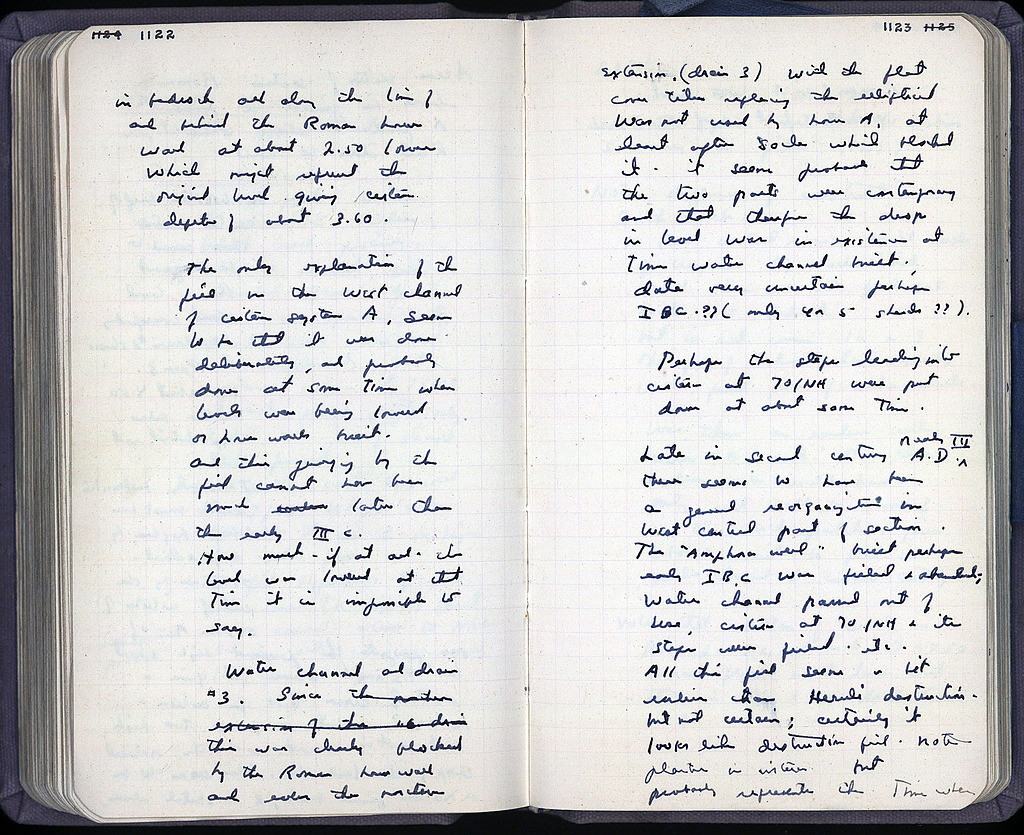 1124 1122
in bedrock and along the line of
and behind the Roman house
wall at about 2.50 lower
which might represent the
original level giving cistern
depth of about 3.60.
The only explanation of the
fill in the west channel
of cistern system A, seems
to be that it was done
deliberately, and probably
done at some time when
levels were being lowered
or house walls built.
and this judging by the
fill cannot have been
much earlier later than
the early III c.
How much - if at all - the
level was lowered at that
time it is impossible to
say.
Water channel and drain
#3. Since the
extension of the drain
this was clearly blocked
by the Roman house wall
and even the northern
1123 1125
extension. (drain 3) with the flat
cover tiles replacing the elliptical
was not used by house A, at
least after socle which blocked
it. it seems probable that
the two parts were contemporary
and that therefore the drop
in level was in existence at
time water channel built.
date very uncertain perhaps
I B.C. ?? ( only 4 or 5 sherds ??).
Perhaps the steps leading into
cistern at 70/NH were put
down at about same time.
Late in second century A.D. or early III
there seems to have been
a general reorganization in
west central part of section.
The "Amphora well" built perhaps
early I B.C. was filled & abandoned;
water channel passed out of
use, cistern at 70/NH & its
steps were filled. etc.
All this fill seems a bit
earlier than Heruli destruction.
but not certain; certainly it
looks like destruction fill. note
plaster in cistern but
probably represents the time when